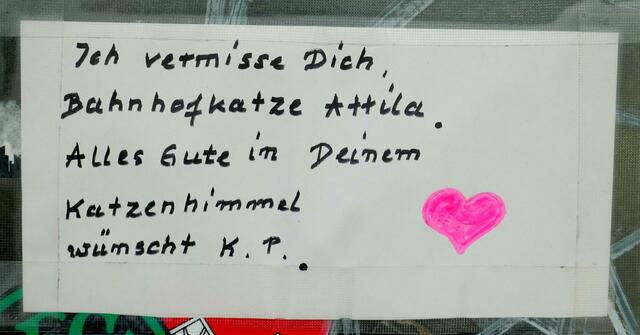 Ich vermisse Dich,
Bahnhofkatze Attila.
Alles Gute in Deinem
Katzenhimmel
wünscht K. P..